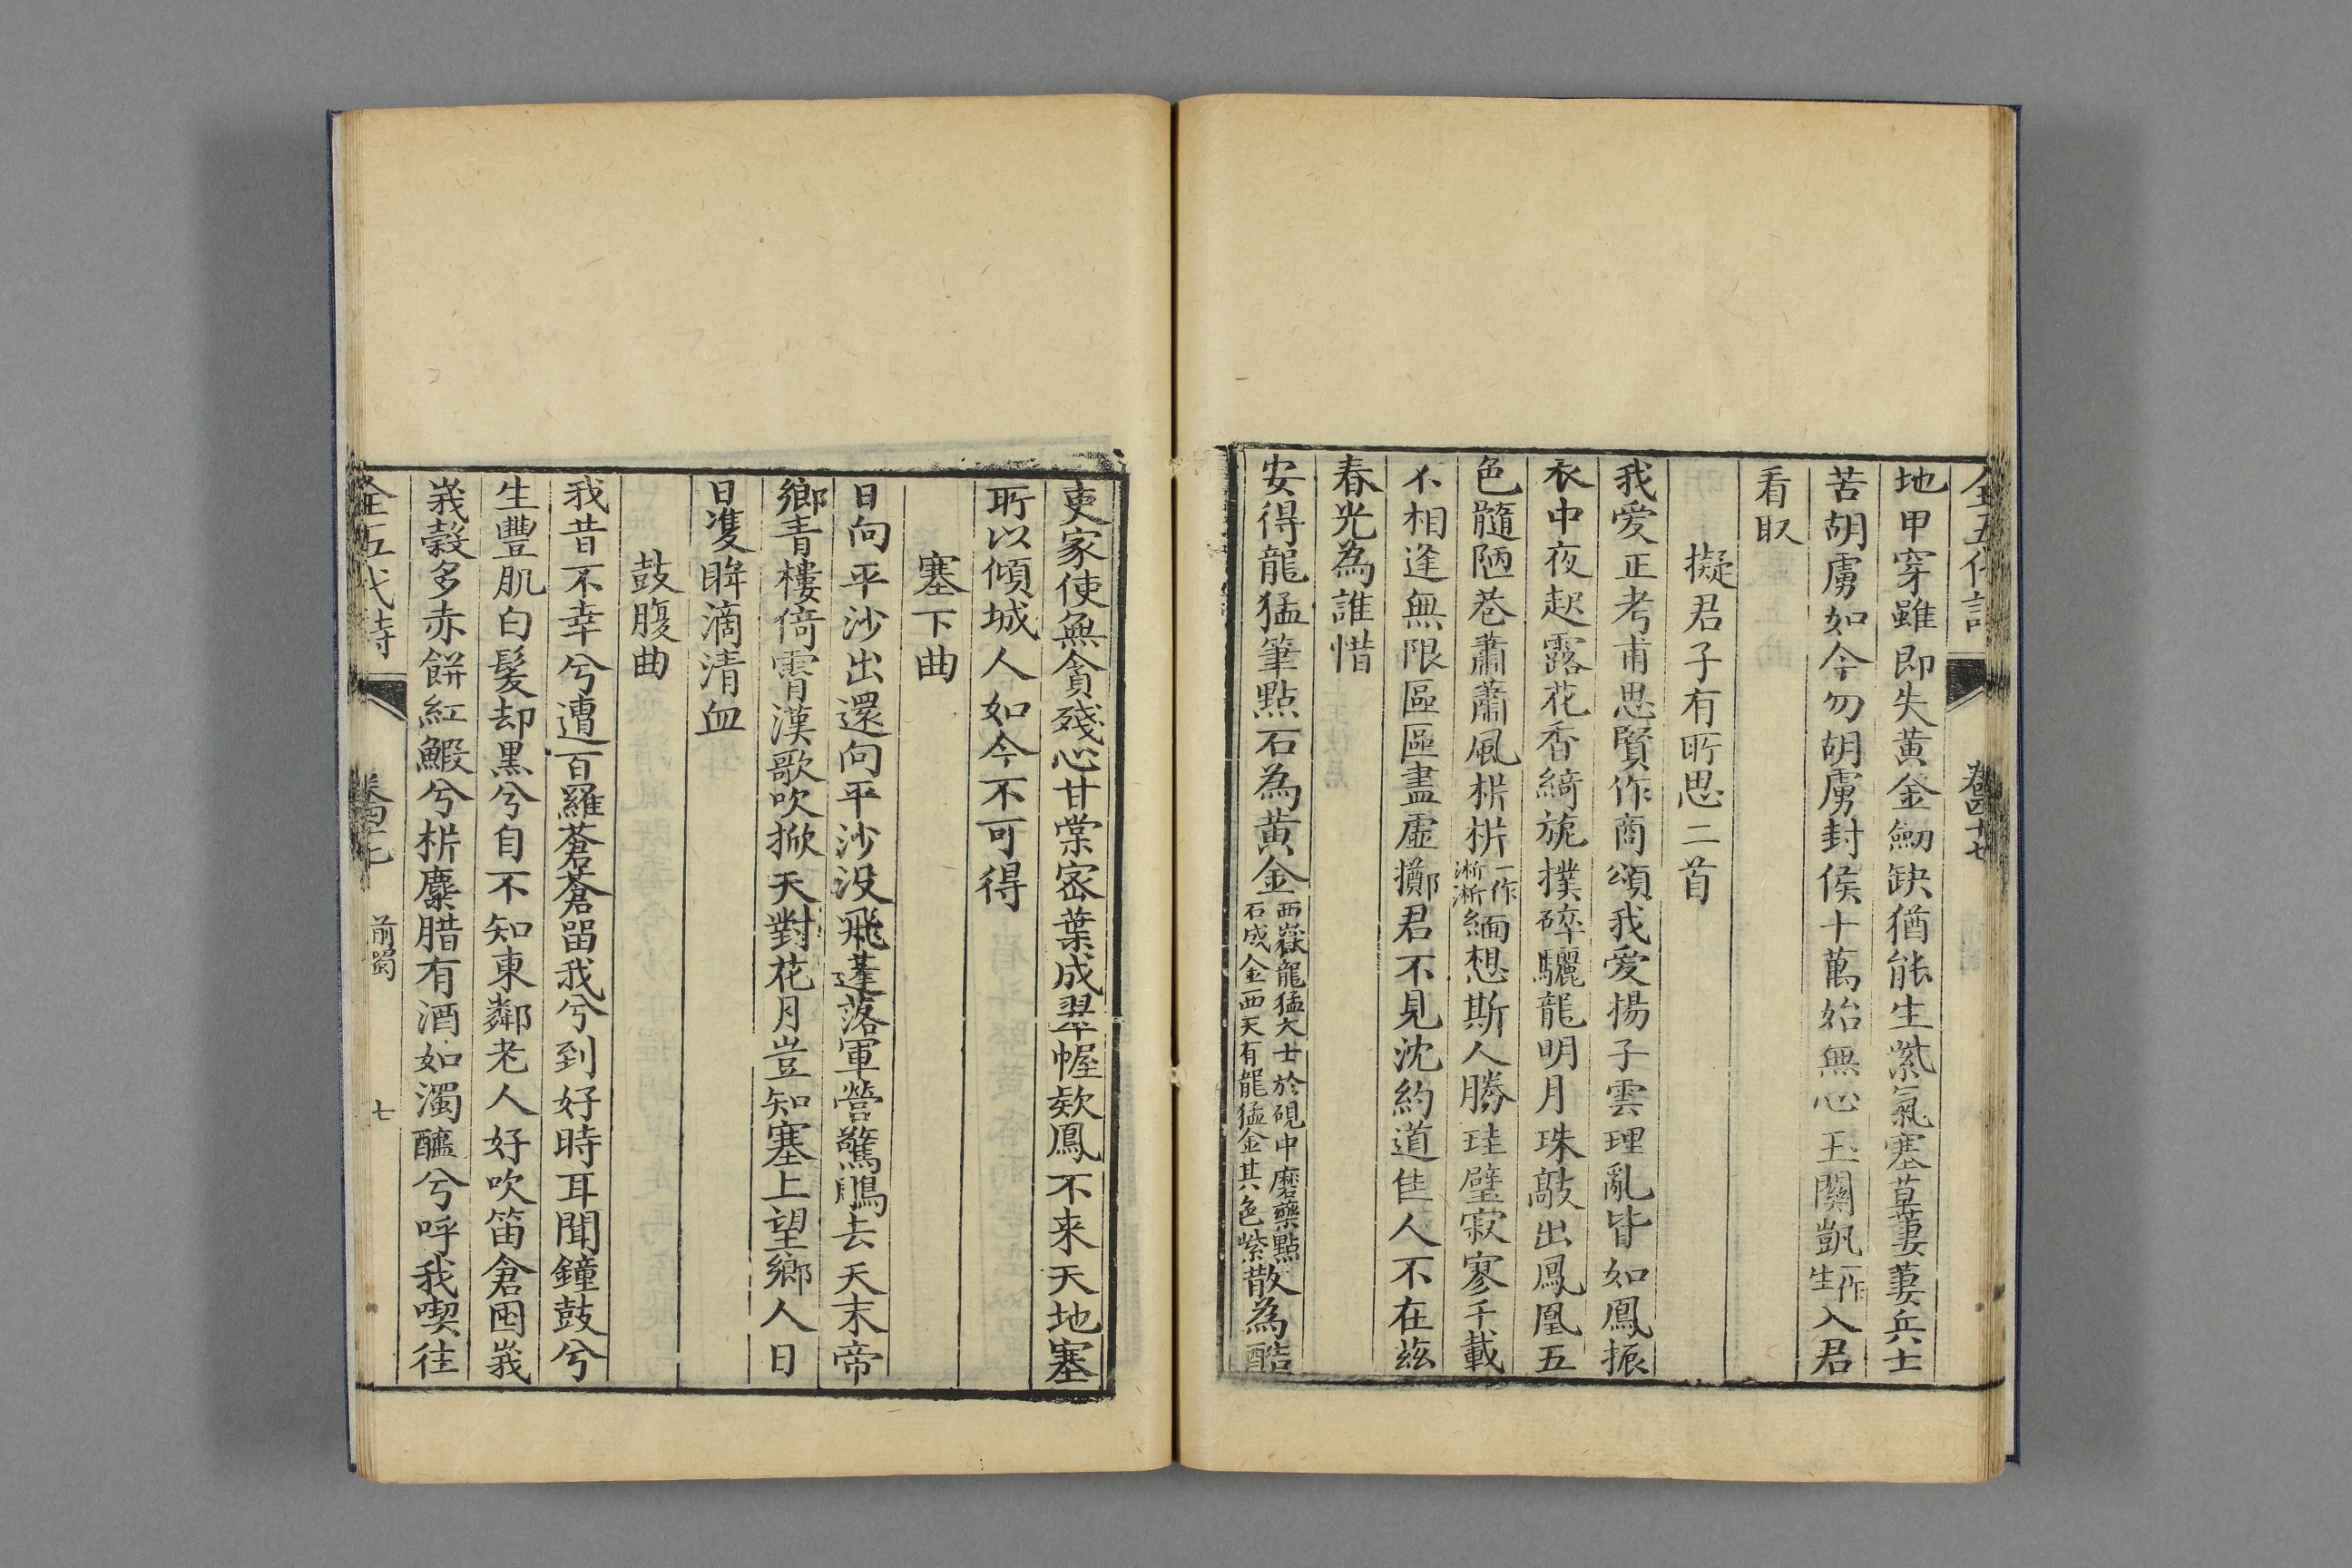 全五代詩 卷四十七
地甲穿雖即失黃金劒缺猶能生紫氣塞草萋萋兵士
苦胡虜如今勿胡虜封侯十萬始無心玉關凱一作生入君
看取
擬君子有所思二首
我愛正考甫思賢作商頌我愛揚子雲理亂皆如鳳振
衣中夜起露花香綺旎撲碎驪龍明月珠敲出鳳凰五
色髓陋巷蕭蕭風析析一作淅淅緬想斯人勝珪璧寂寥千載
不相逢無限區區盡虛擲君不見沈約道佳人不在茲
春光為誰惜
安得龍猛筆點石為黃金西嶽龍猛大士於硯中磨藥點石成金西天有龍猛金其色紫散為酷
吏家使無貪殘心甘棠密葉成翠幄欵鳳不来天地塞
所以傾城人如今不可得
塞下曲
日向平沙出還向平沙没飛蓬落軍營驚鵰去天末帝
鄉青樓倚霄漢歌吹掀天對花月豈知塞上望鄉人日
日雙眸滴清血
鼓腹曲
我昔不幸兮遭百羅蒼蒼留我兮到好時耳聞鐘鼓兮
生豐肌白髪却黒兮自不知東鄰老人好吹笛倉囷峩
峩穀多赤餅紅鰕兮析麋腊有酒如濁醯兮呼我喫往
全五代詩 卷四十七 前蜀 七